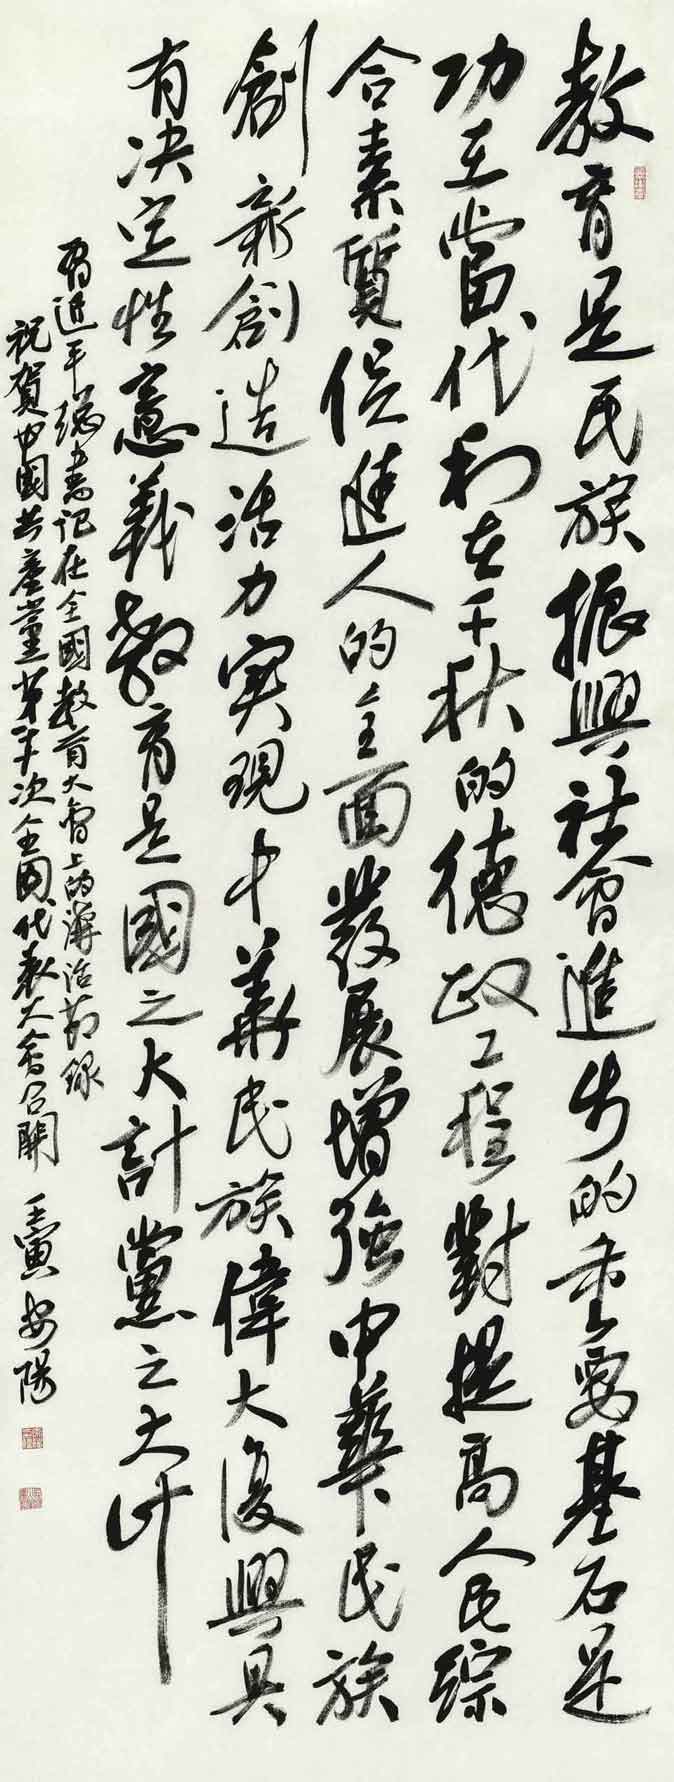 教育是民族振興社會進步的重要基石是
功在當代利在千秋的德政工程對提高人民綜
合素質促進人的全面發展增強中華民族
創新創造活力實現中華民族偉大復興具
有決定性意義教育是國之大計黨之大計
習近平總書記在全國教育大會上的講話節錄
祝賀中國共產黨第二十次全國代表大會召開 壬寅 安陽